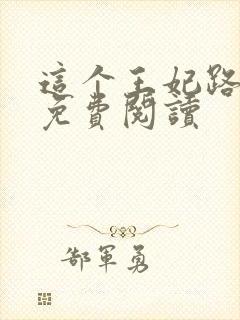 這个王妃路
免費閱讀
郜軍勇